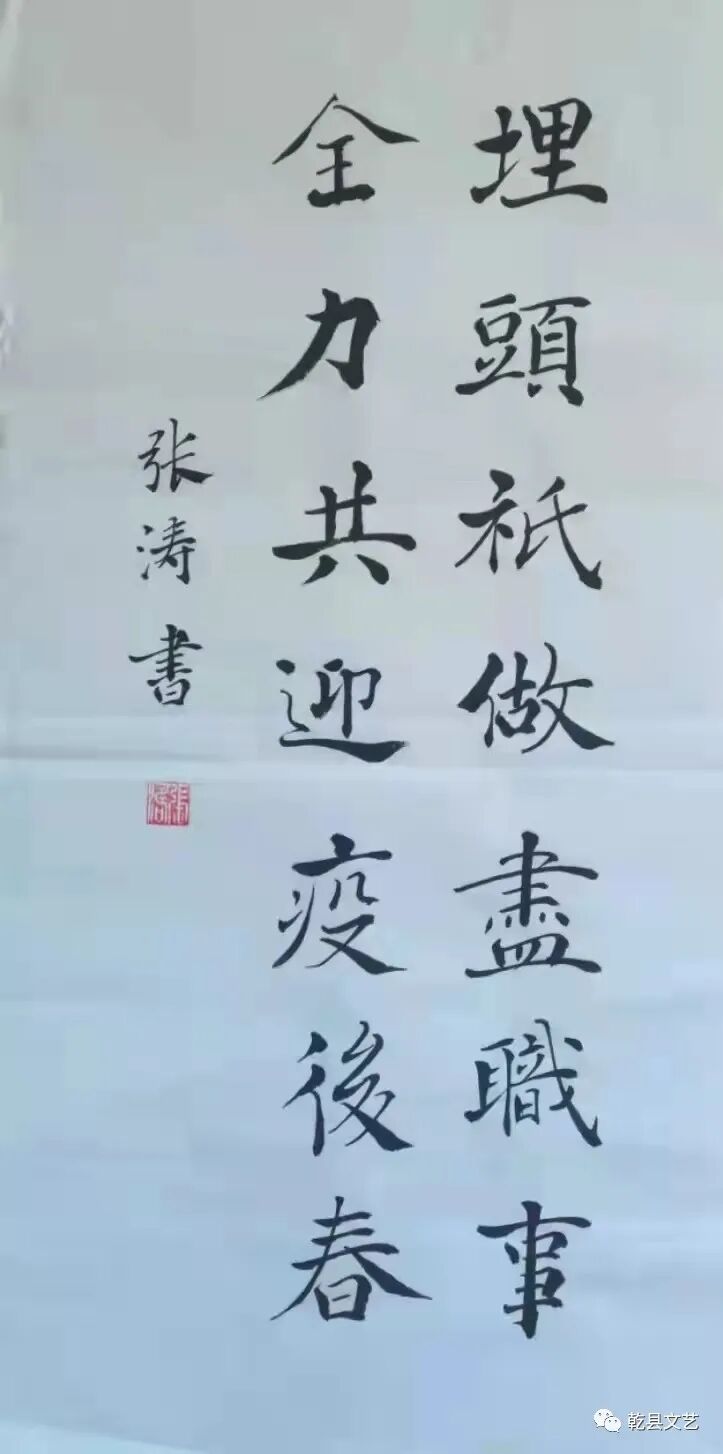 埋頭祇做盡職事
全力共迎疫後春
张涛書
乾县文艺